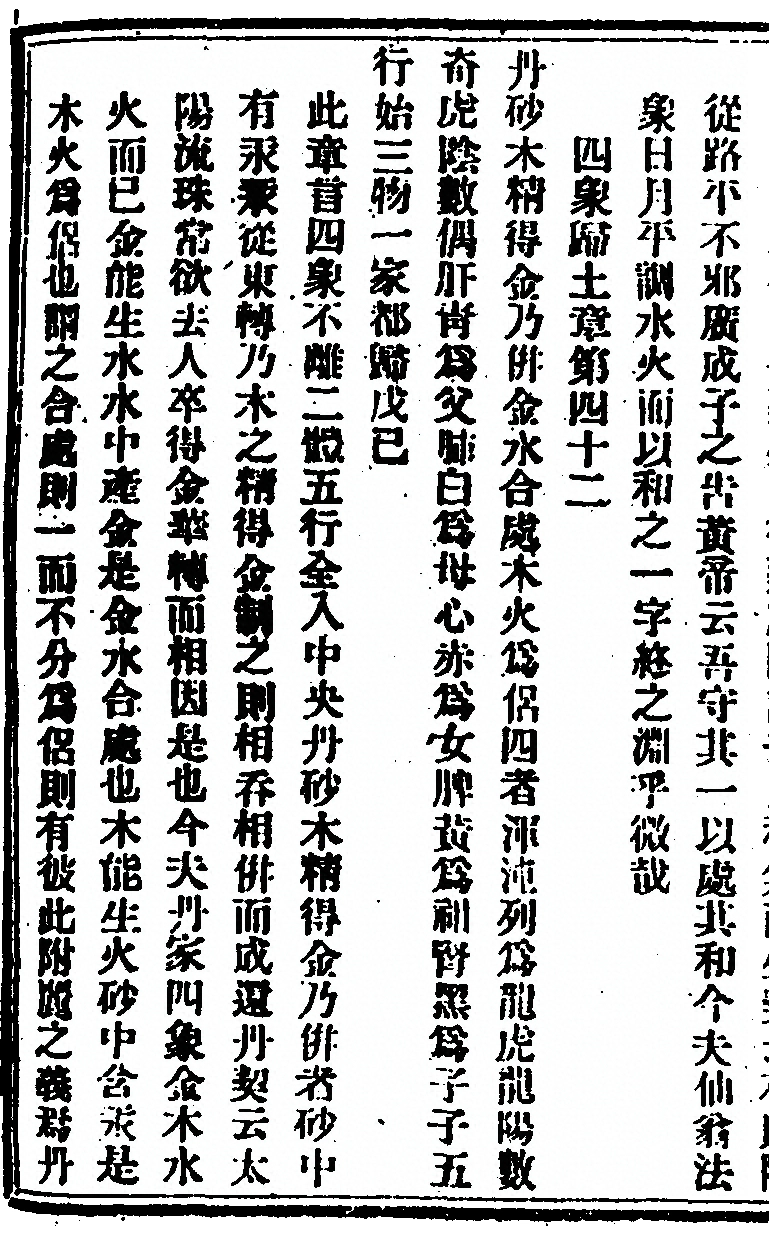 從路平不邪廣成子之告黃帝云吾守其一以處其和今夫仙翁法
象日月平調水火而以和之一字終之淵乎微哉
四象歸土章第四十二
丹砂木精得金乃併金水合處木火爲侶四者渾沌列爲龍虎龍陽數
奇虎陰數偶肝青爲父肺白爲母心赤爲女脾黃爲祖腎黑爲子子五
行始三物一家都歸戊己
此章言四象不離二體五行全入中央丹砂木精得金乃併者砂中
有汞汞從東轉乃木之精得金制之則相吞相併而成還丹契云太
陽流珠常欲去人卒得金華轉而相因是也今夫丹家四象金木水
火而已金能生水水中產金是金水合處也木能生火砂中含汞是
木火爲侶也謂之合處則一而不分爲侶則有彼此附麗之義爲丹